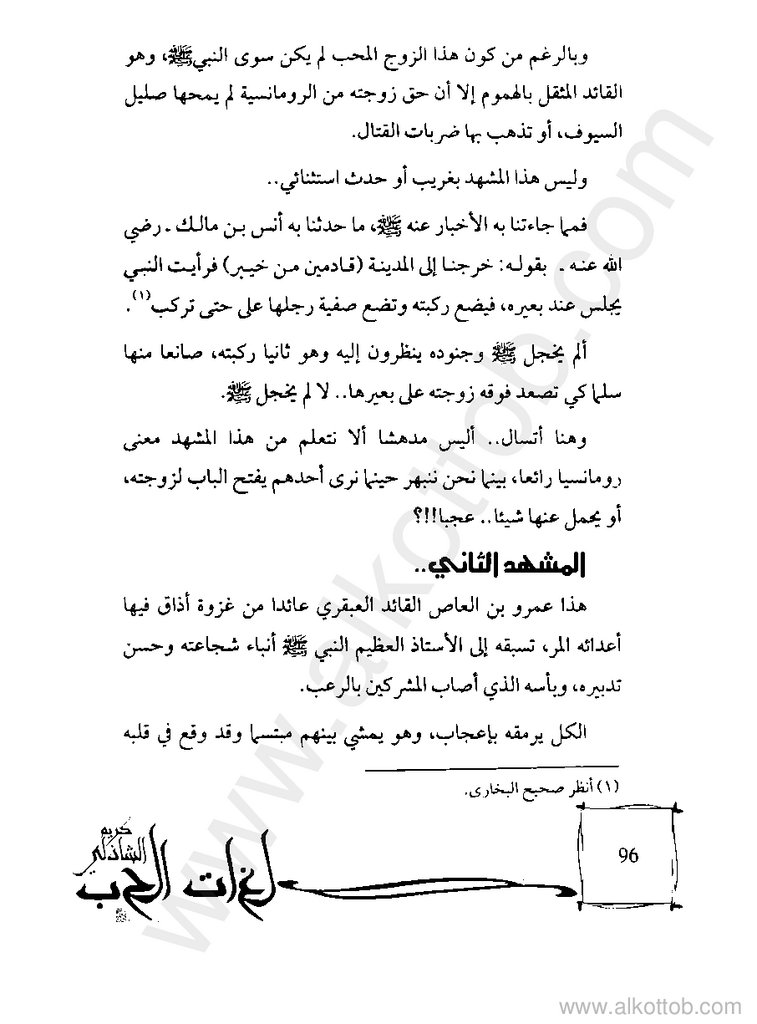 وبالرغم من كون هذا الزوج المحب لم يكن سوى النبي ﷺ، وهو
القائد المثقل بالهموم إلا أن حق زوجته من الرومانسية لم يمحها صليل
السيوف، أو تذهب بها ضربات القتال.
وليس هذا المشهد بغريب أو حدث استثنائي..
فمما جاءتنا به الأخبار عنه ﷺ، ما حدثنا به أنس بن مالك ـ رضي
الله عنه ـ بقوله: خرجنا إلى المدينة (قادمين من خيبر) فرأيت النبي
يجلس عند بعيره، فيضع ركبته وتضع صفية رجلها على حتى تركب(١).
ألم يخجل ﷺ وجنوده ينظرون إليه وهو ثانيا ركبته، صانعا منها
سلما كي تصعد فوقه زوجته على بعيرها.. لا لم يخجل ﷺ.
وهنا أتسال.. أليس مدهشا ألا نتعلم من هذا المشهد معنى
رومانسيا رائعا، بينما نحن ننبهر حينما نرى أحدهم يفتح الباب لزوجته،
أو يحمل عنها شيئا.. عجبا!!!؟
المشهد الثاني..
هذا عمرو بن العاص القائد العبقري عائدا من غزوة أذاق فيها
أعدائه المر، تسبقه إلى الأستاذ العظيم النبي ﷺ أنباء شجاعته وحسن
تدبيره، وبأسه الذي أصاب المشركين بالرعب.
الكل يرمقه بإعجاب، وهو يمشي بينهم مبتسما وقد وقع في قلبه
(١) أنظر صحيح البخارى.
96
كريم
الشاذلي
لغات الحب
www.alkottob.com
www.alkottob.com